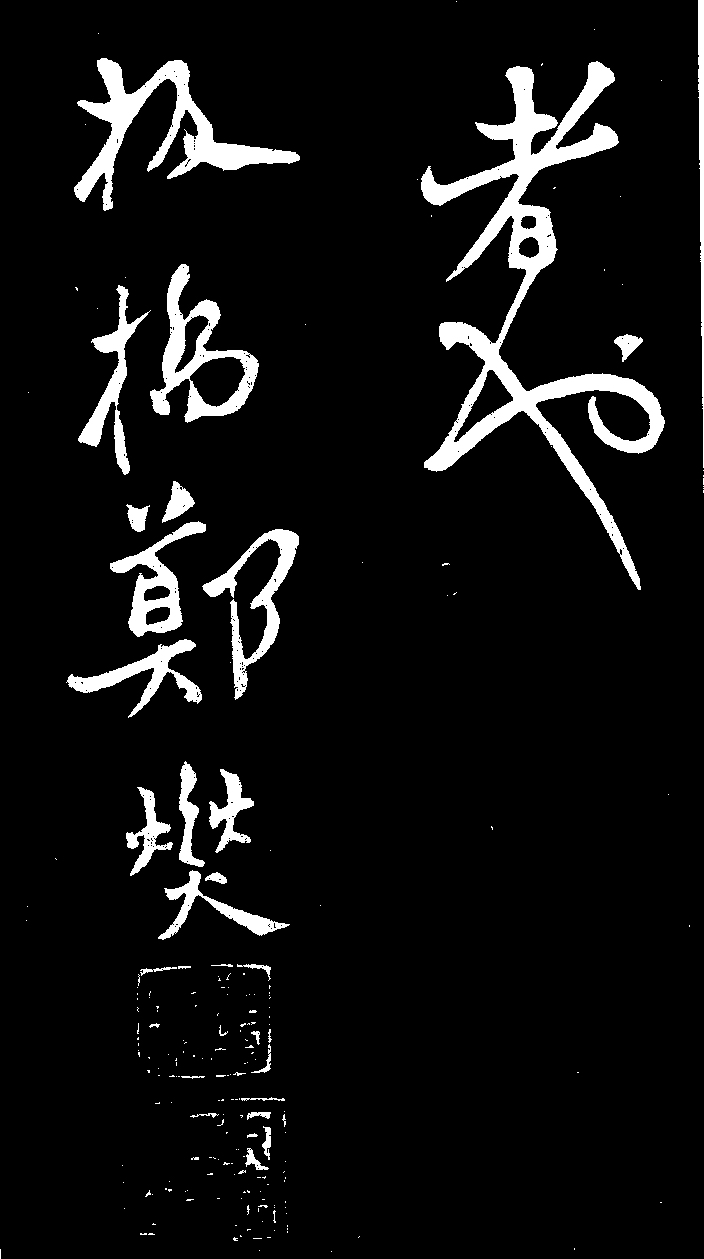 者也
板橋鄭燮